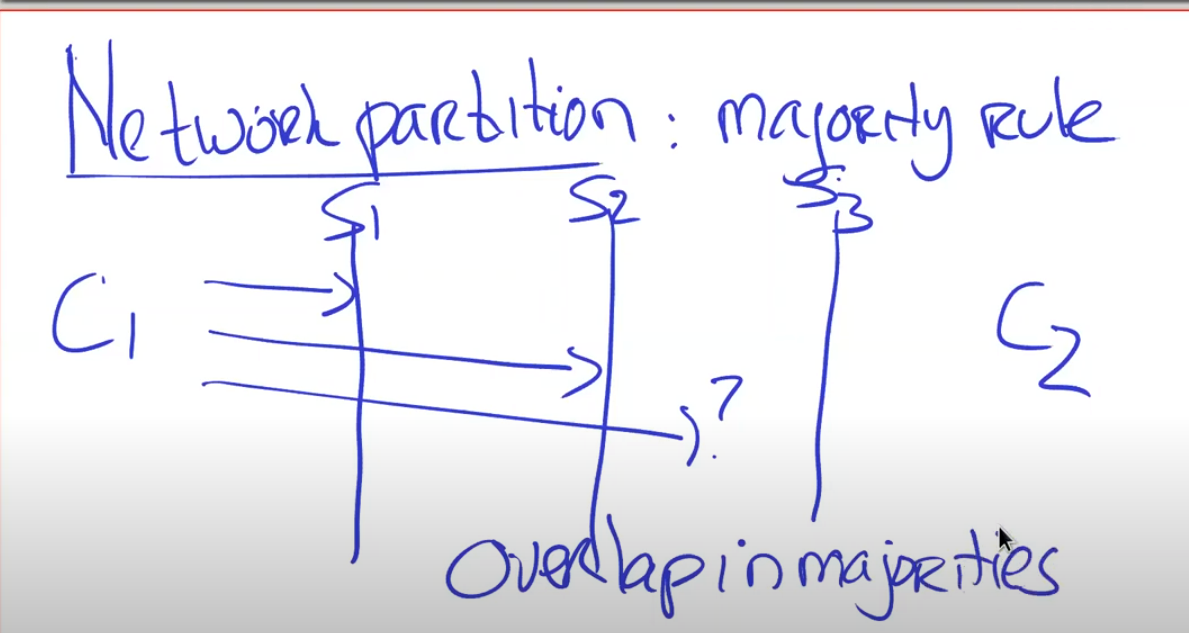 Network partition : majority rule
S1 S2 S3
C1 C2
?
Overlap in majorities